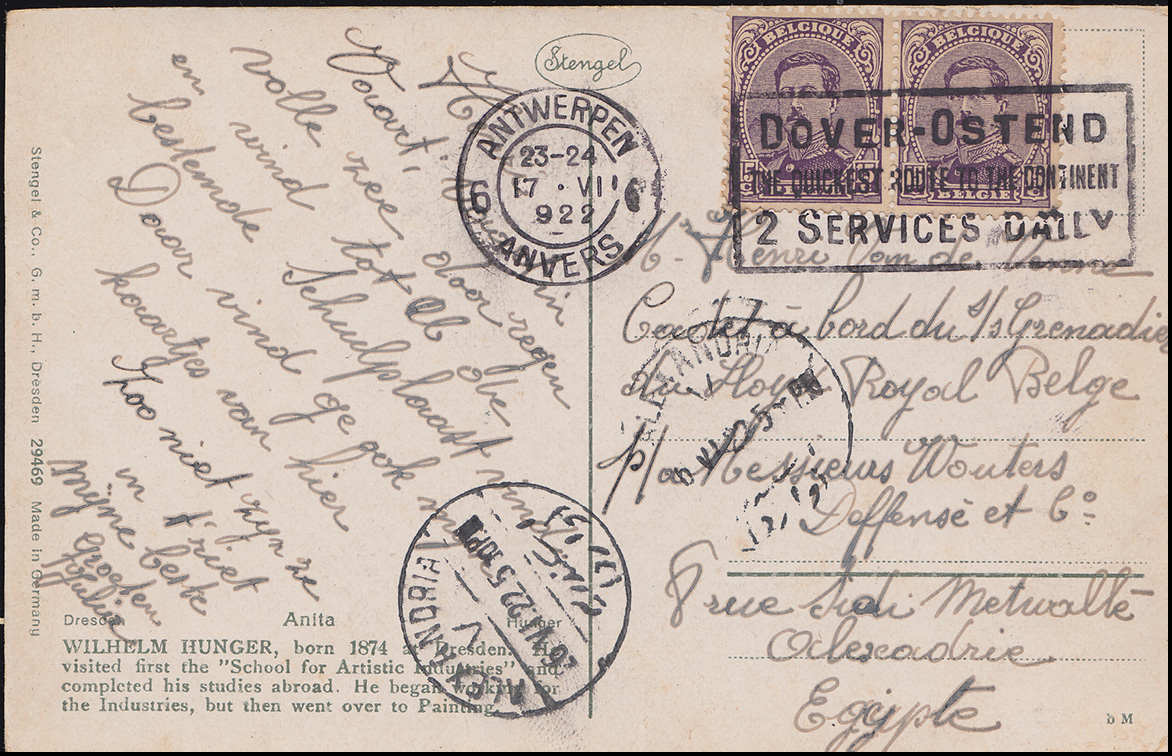 Stengel
BELGIQUE
BELGIQUE
BELGIË
BELGIË
ANTWERPEN
23-24
17 · VII
922
6
6
ANVERS
DOVER-OSTEND
THE QUICKEST ROUTE TO THE CONTINENT
2 SERVICES DAILY
volle zee door regen
en wind tot
bestemde Schulplaast
Daar vind ge ook
kaartjes van hier
Zoo niet zyn ze
in t'riet
Mijne beste
Groeten
Mr Henri Van de
Cadet à bord du S/S Grenadier
du Lloyd Royal Belge
p/a Messieurs Wouters
Deffense et Co.
8 rue Sidi Metwalli
Alexandrie
Egypte
ALEXANDRIA
22. 5 30 PM
ALEXANDRIA
Stengel & Co., G. m. b. H., Dresden 29469 Made in Germany
Dresden Anita Hunger
WILHELM HUNGER, born 1874 at Dresden. He
visited first the "School for Artistic Industries" and
completed his studies abroad. He began working for
the Industries, but then went over to Painting.
b M